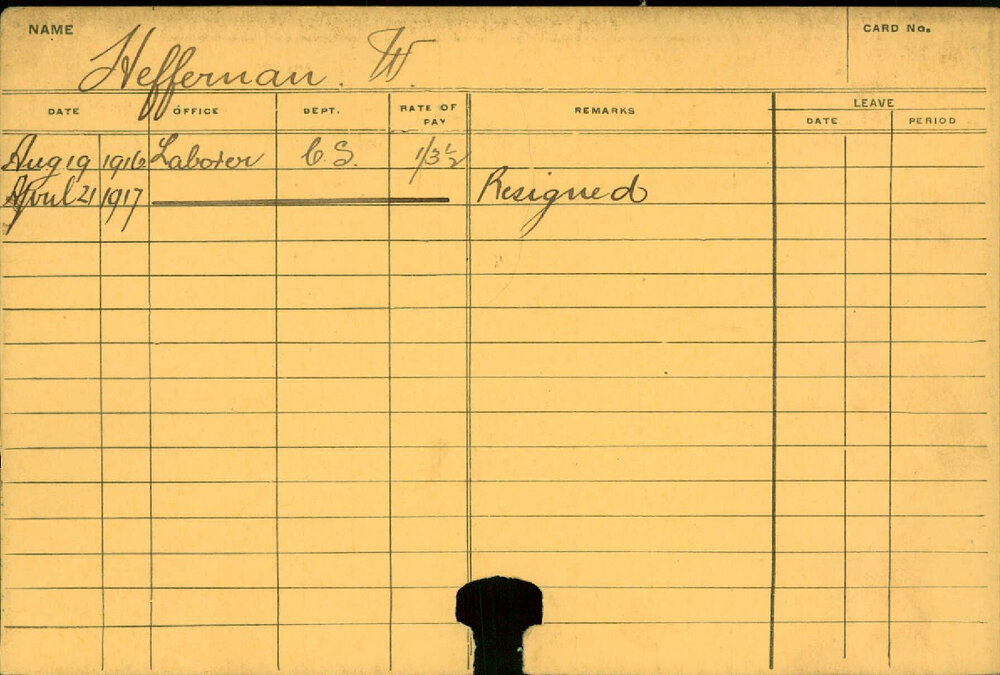 NAME CARD No.
Heffernan. W.
DATE OFFICE DEPT. RATE OF PAY REMARKS LEAVE
DATE PERIOD
Aug 19 1916 Laborer C.S. 1/3½
April 21 1917 Resigned